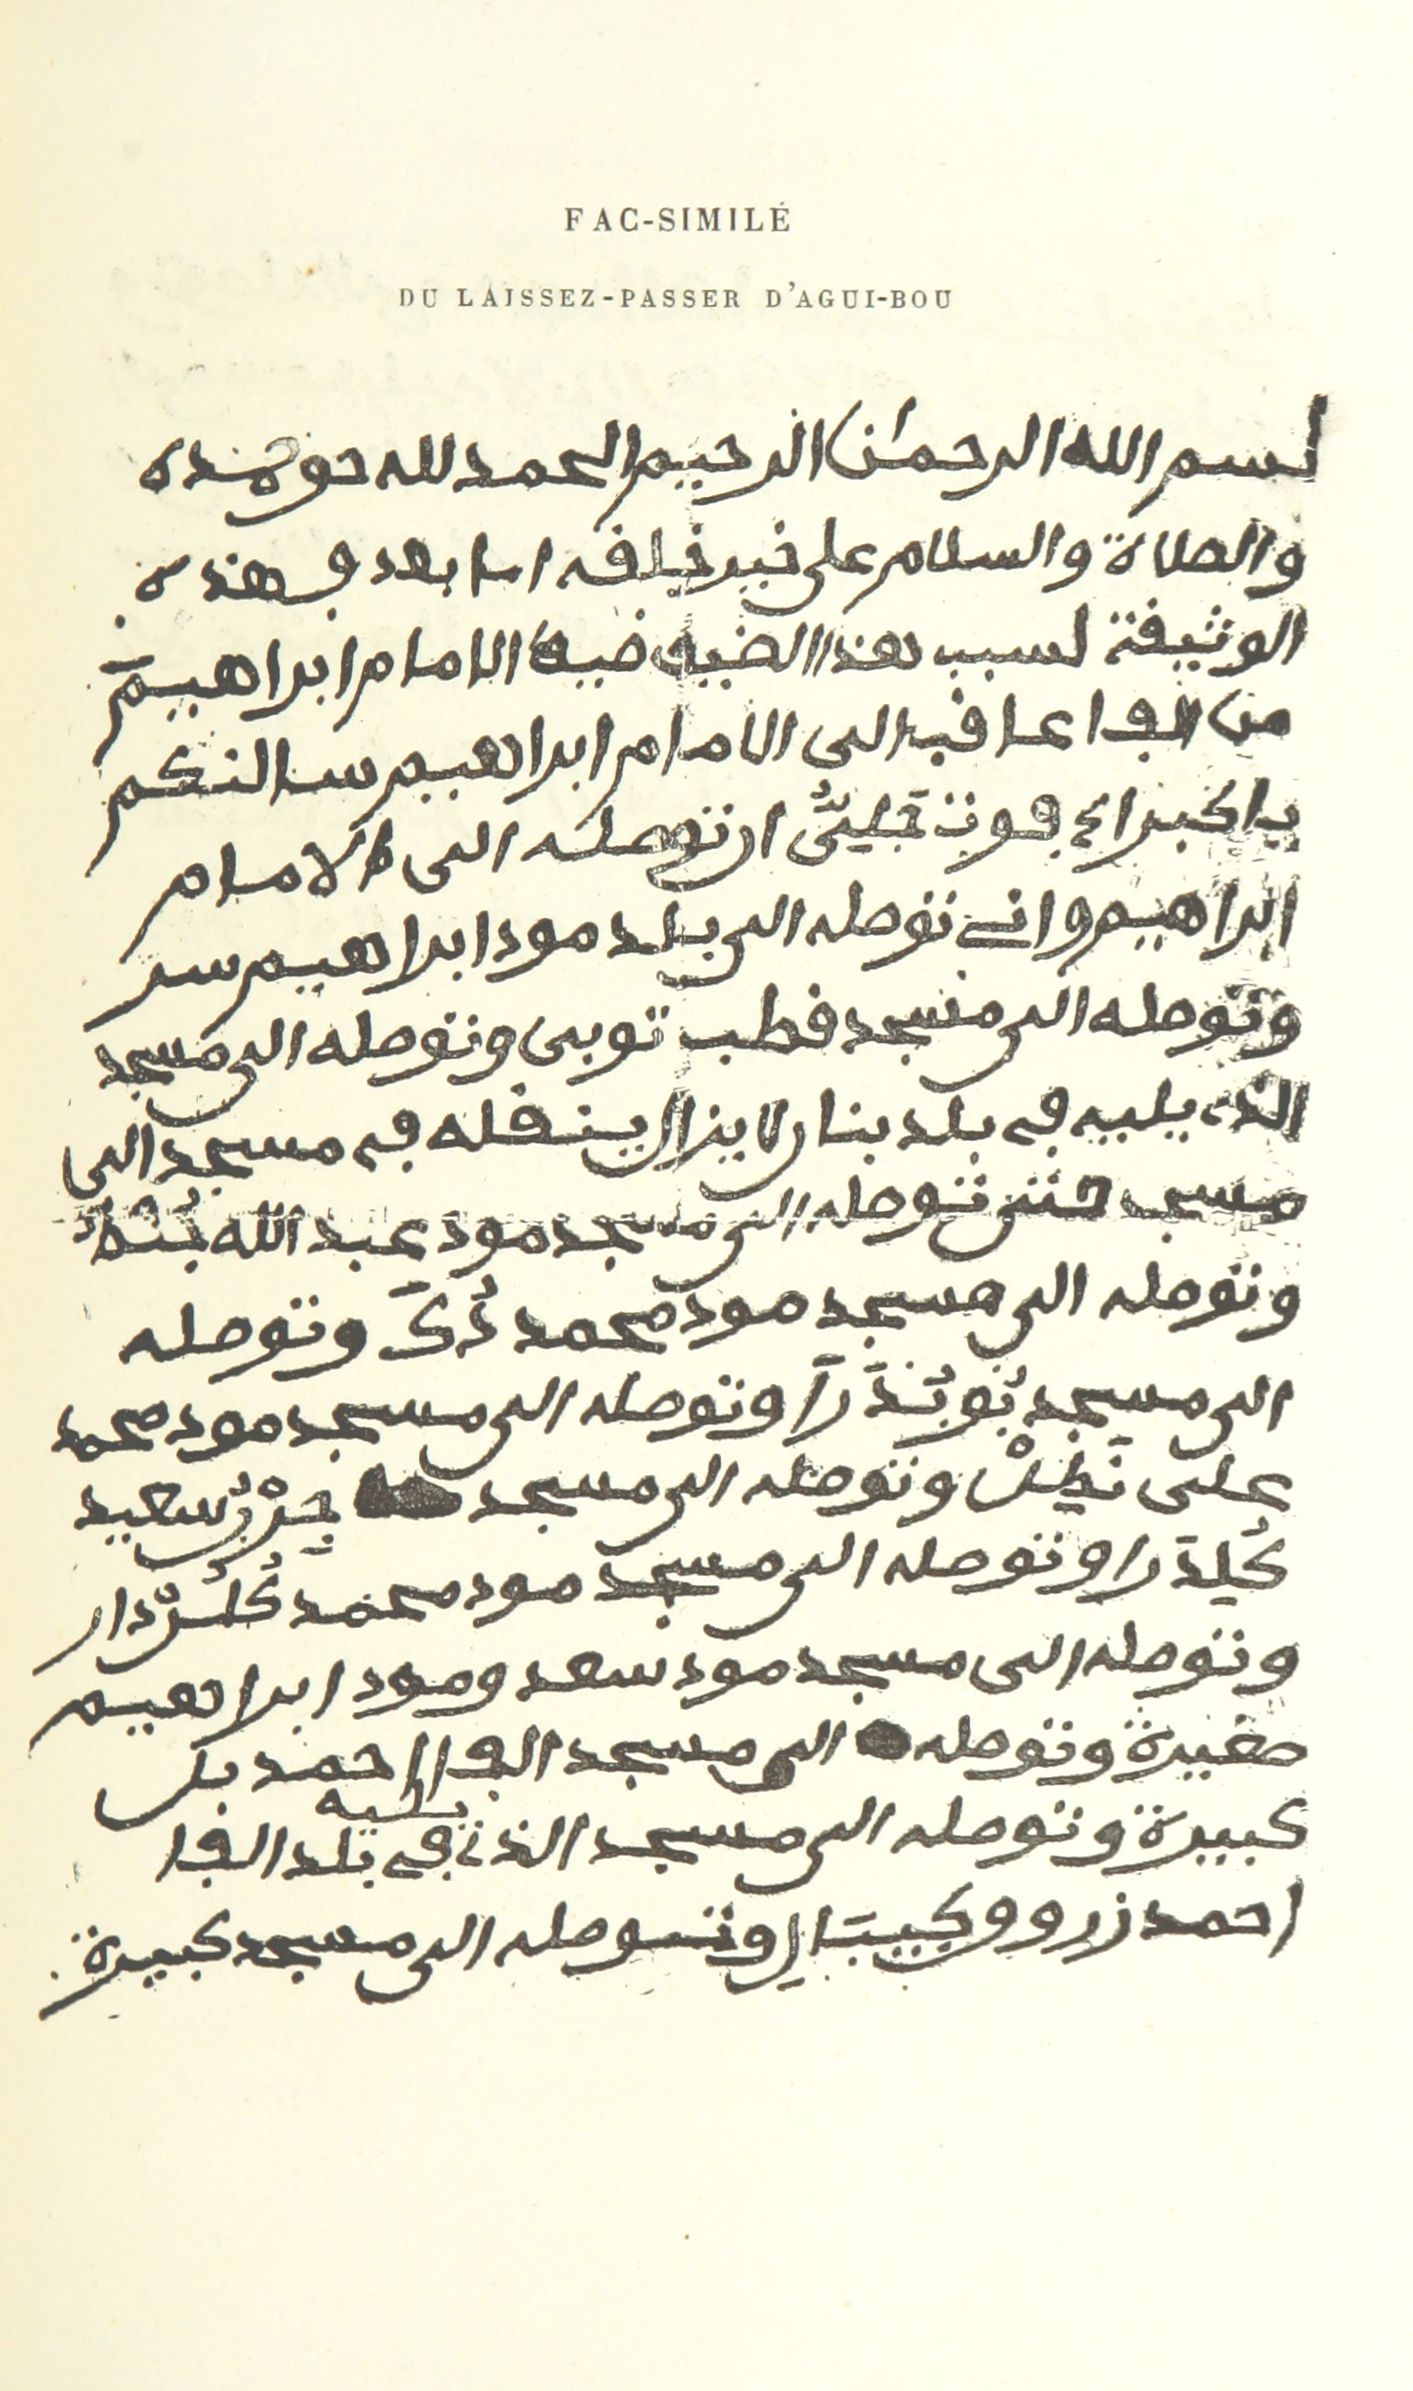 FAC-SIMILÉ
DU LAISSEZ-PASSER D'AGUI-BOU
بسم الله الرحمن الرحيم الحمد لله حق حمده
والصلاة والسلام على خير خلقه اما بعد فهذه
الوثيقة لسبب هذا الضيف ضيف الامام ابراهيم
من الفا عاقب الى الامام ابراهيم سالنكم
يا كبراء ان توصله الى الامام
ابراهيم وان توصله الى بلد مود ابراهيم سر
وتوصله الى مسجد قطب توبى وتوصله الى مسجد
الذي يليه في بلد بنا لا يزال ينقله في مسجد الى
مسجد حتى توصله الى مسجد مود عبد الله
وتوصله الى مسجد مود محمد دُكَ وتوصله
الى مسجد وتوصله الى مسجد مود محمد
على وتوصله الى مسجد سعيد
وتوصله الى مسجد مود محمد
وتوصله الى مسجد مود سعد ومود ابراهيم
صغيرة وتوصله الى مسجد الفا احمد بل
كبيرة وتوصله الى مسجد الذي يليه في بلد الفا
احمد زرو وتوصله الى مسجد كبيرة